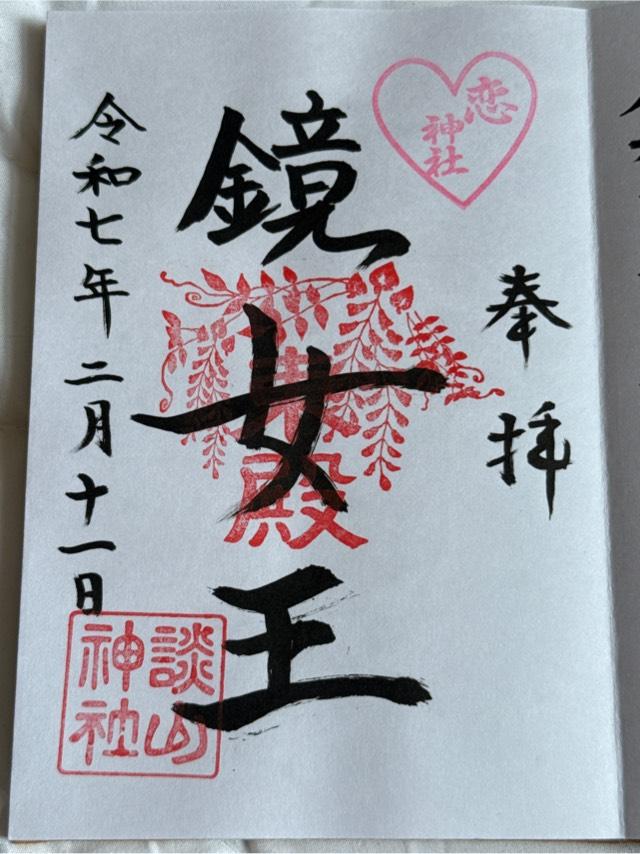 恋
神社
奉拝
鏡女王
東殿
令和七年二月十一日
談山
神社